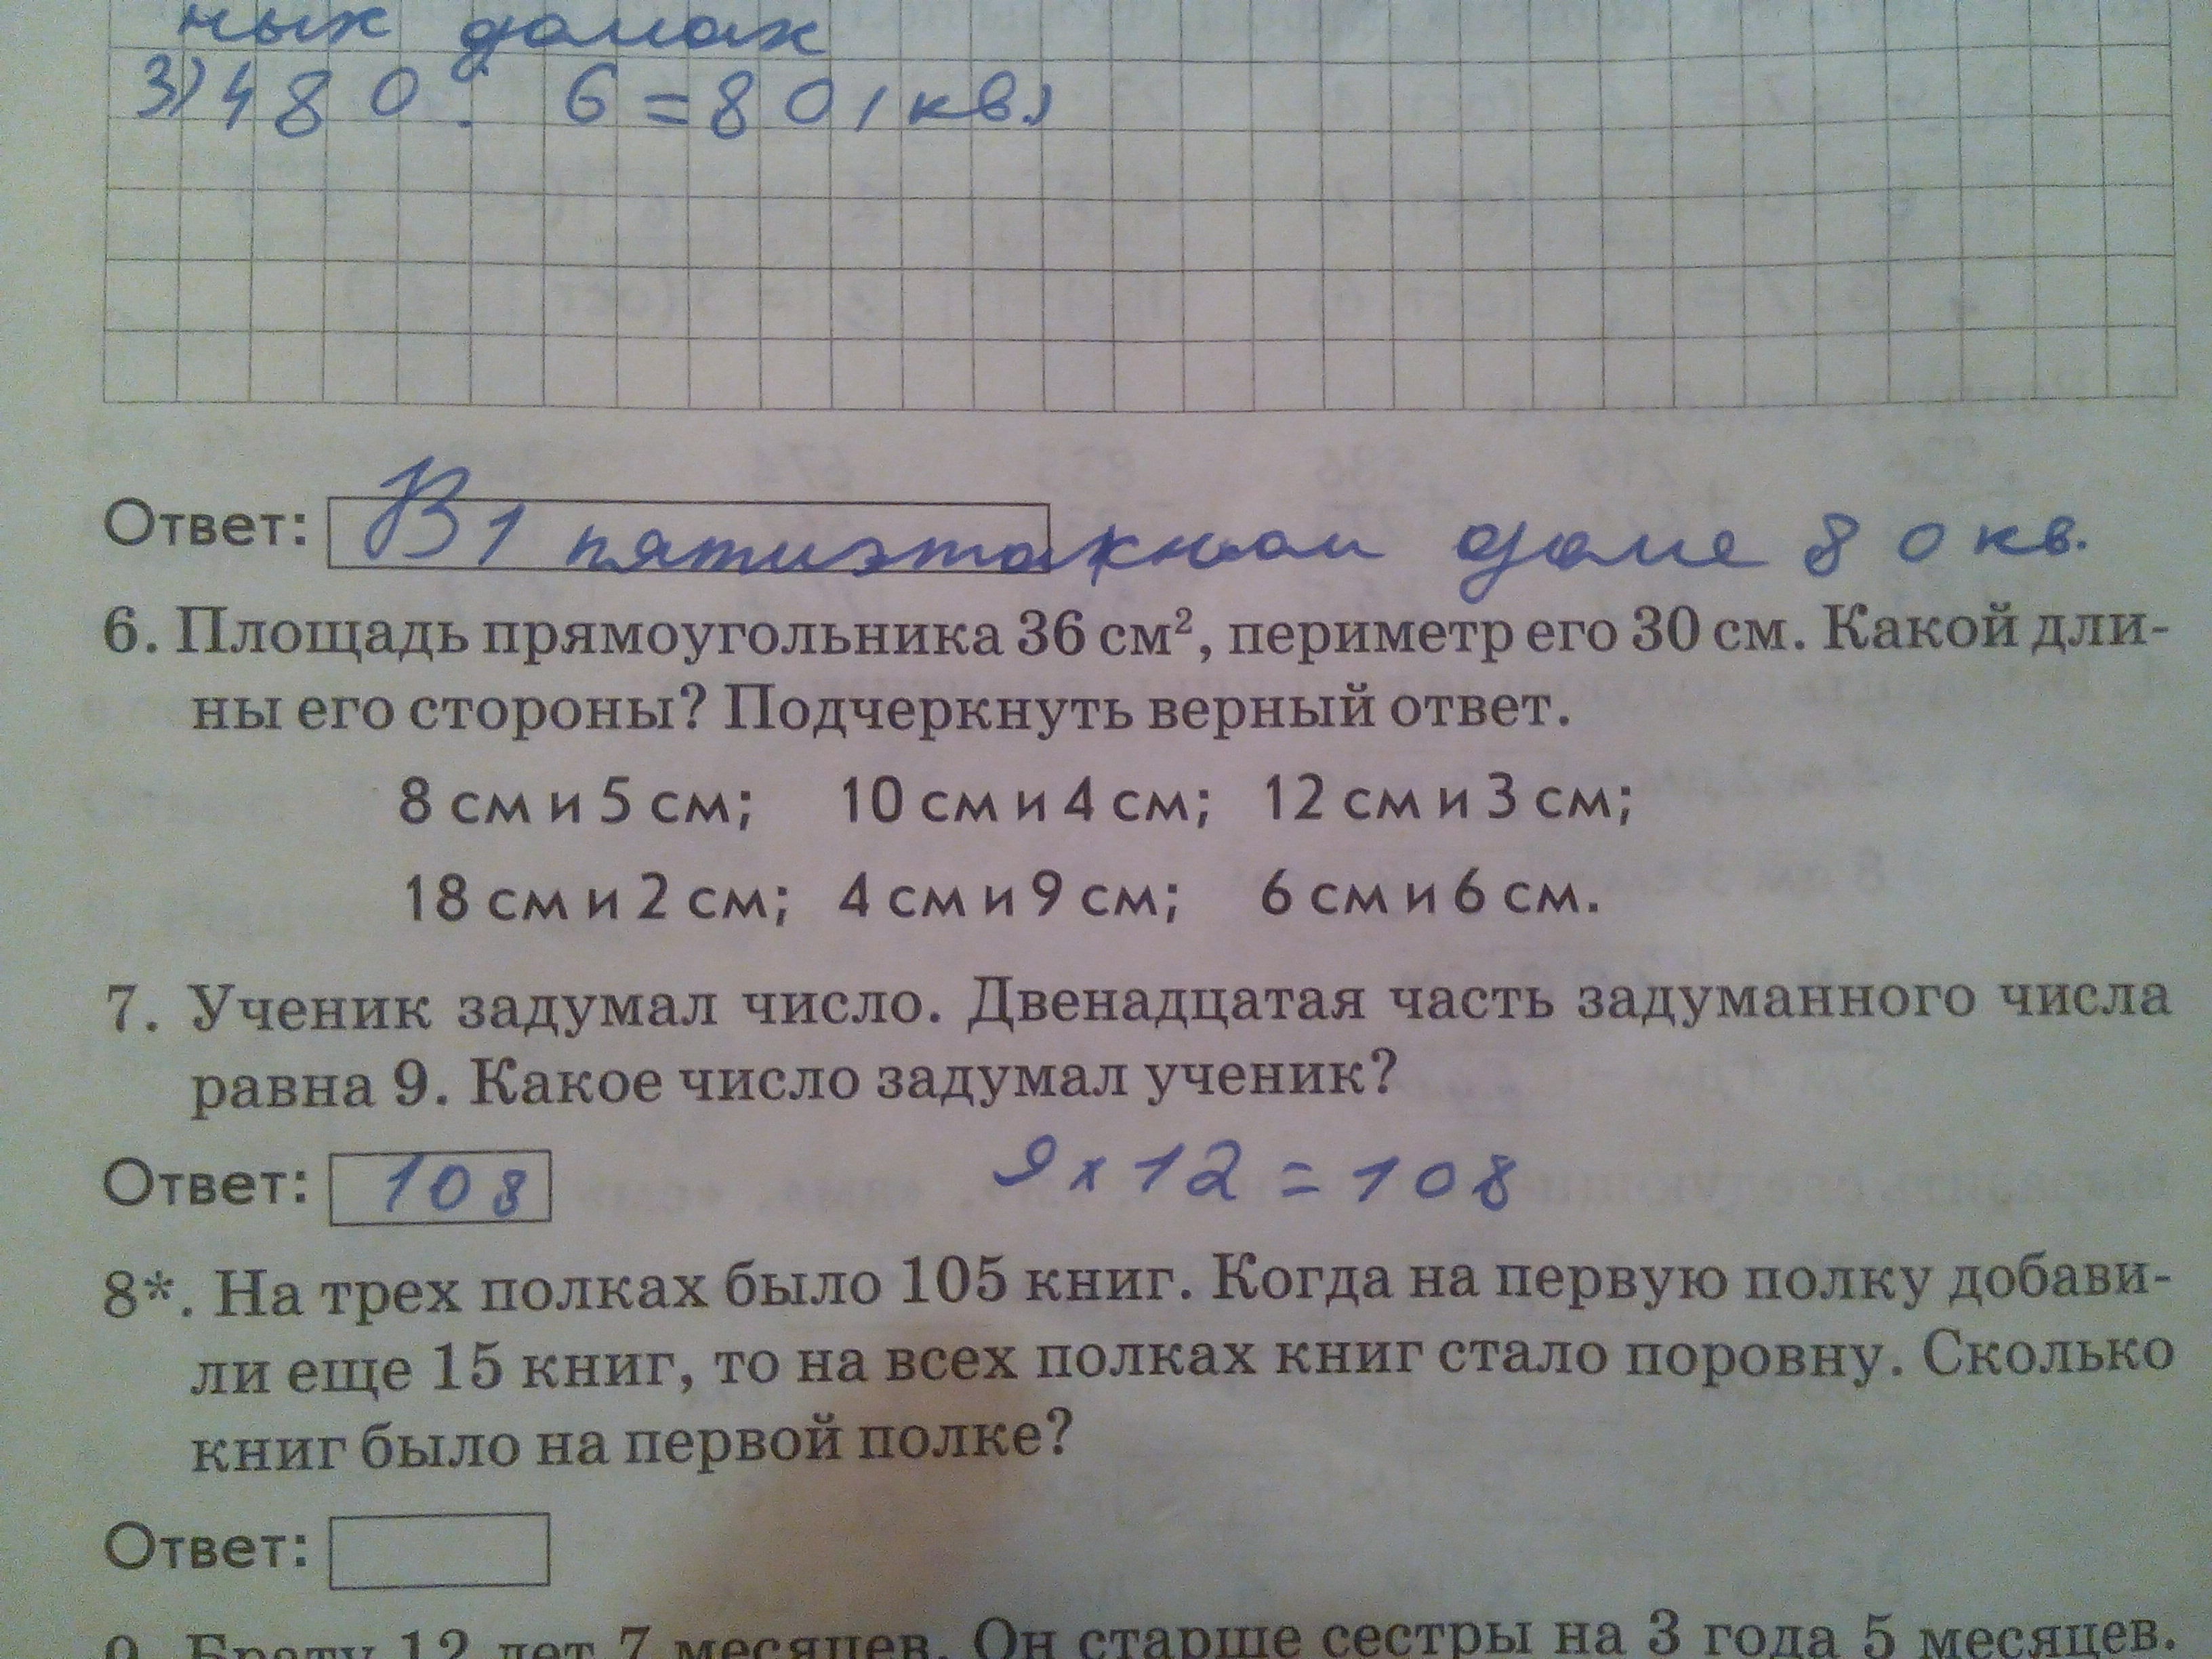 ных домах
3) 480 : 6 = 80 (кв.)
Ответ: В 1 пятиэтажном доме 80 кв.
6. Площадь прямоугольника 36 см², периметр его 30 см. Какой дли-
ны его стороны? Подчеркнуть верный ответ.
8 см и 5 см; 10 см и 4 см; 12 см и 3 см;
18 см и 2 см; 4 см и 9 см; 6 см и 6 см.
7. Ученик задумал число. Двенадцатая часть задуманного числа
равна 9. Какое число задумал ученик?
Ответ: 108 9 х 12 = 108
8*. На трех полках было 105 книг. Когда на первую полку добави-
ли еще 15 книг, то на всех полках книг стало поровну. Сколько
книг было на первой полке?
Ответ:
9. Брату 12 лет 7 месяцев. Он старше сестры на 3 года 5 месяцев.